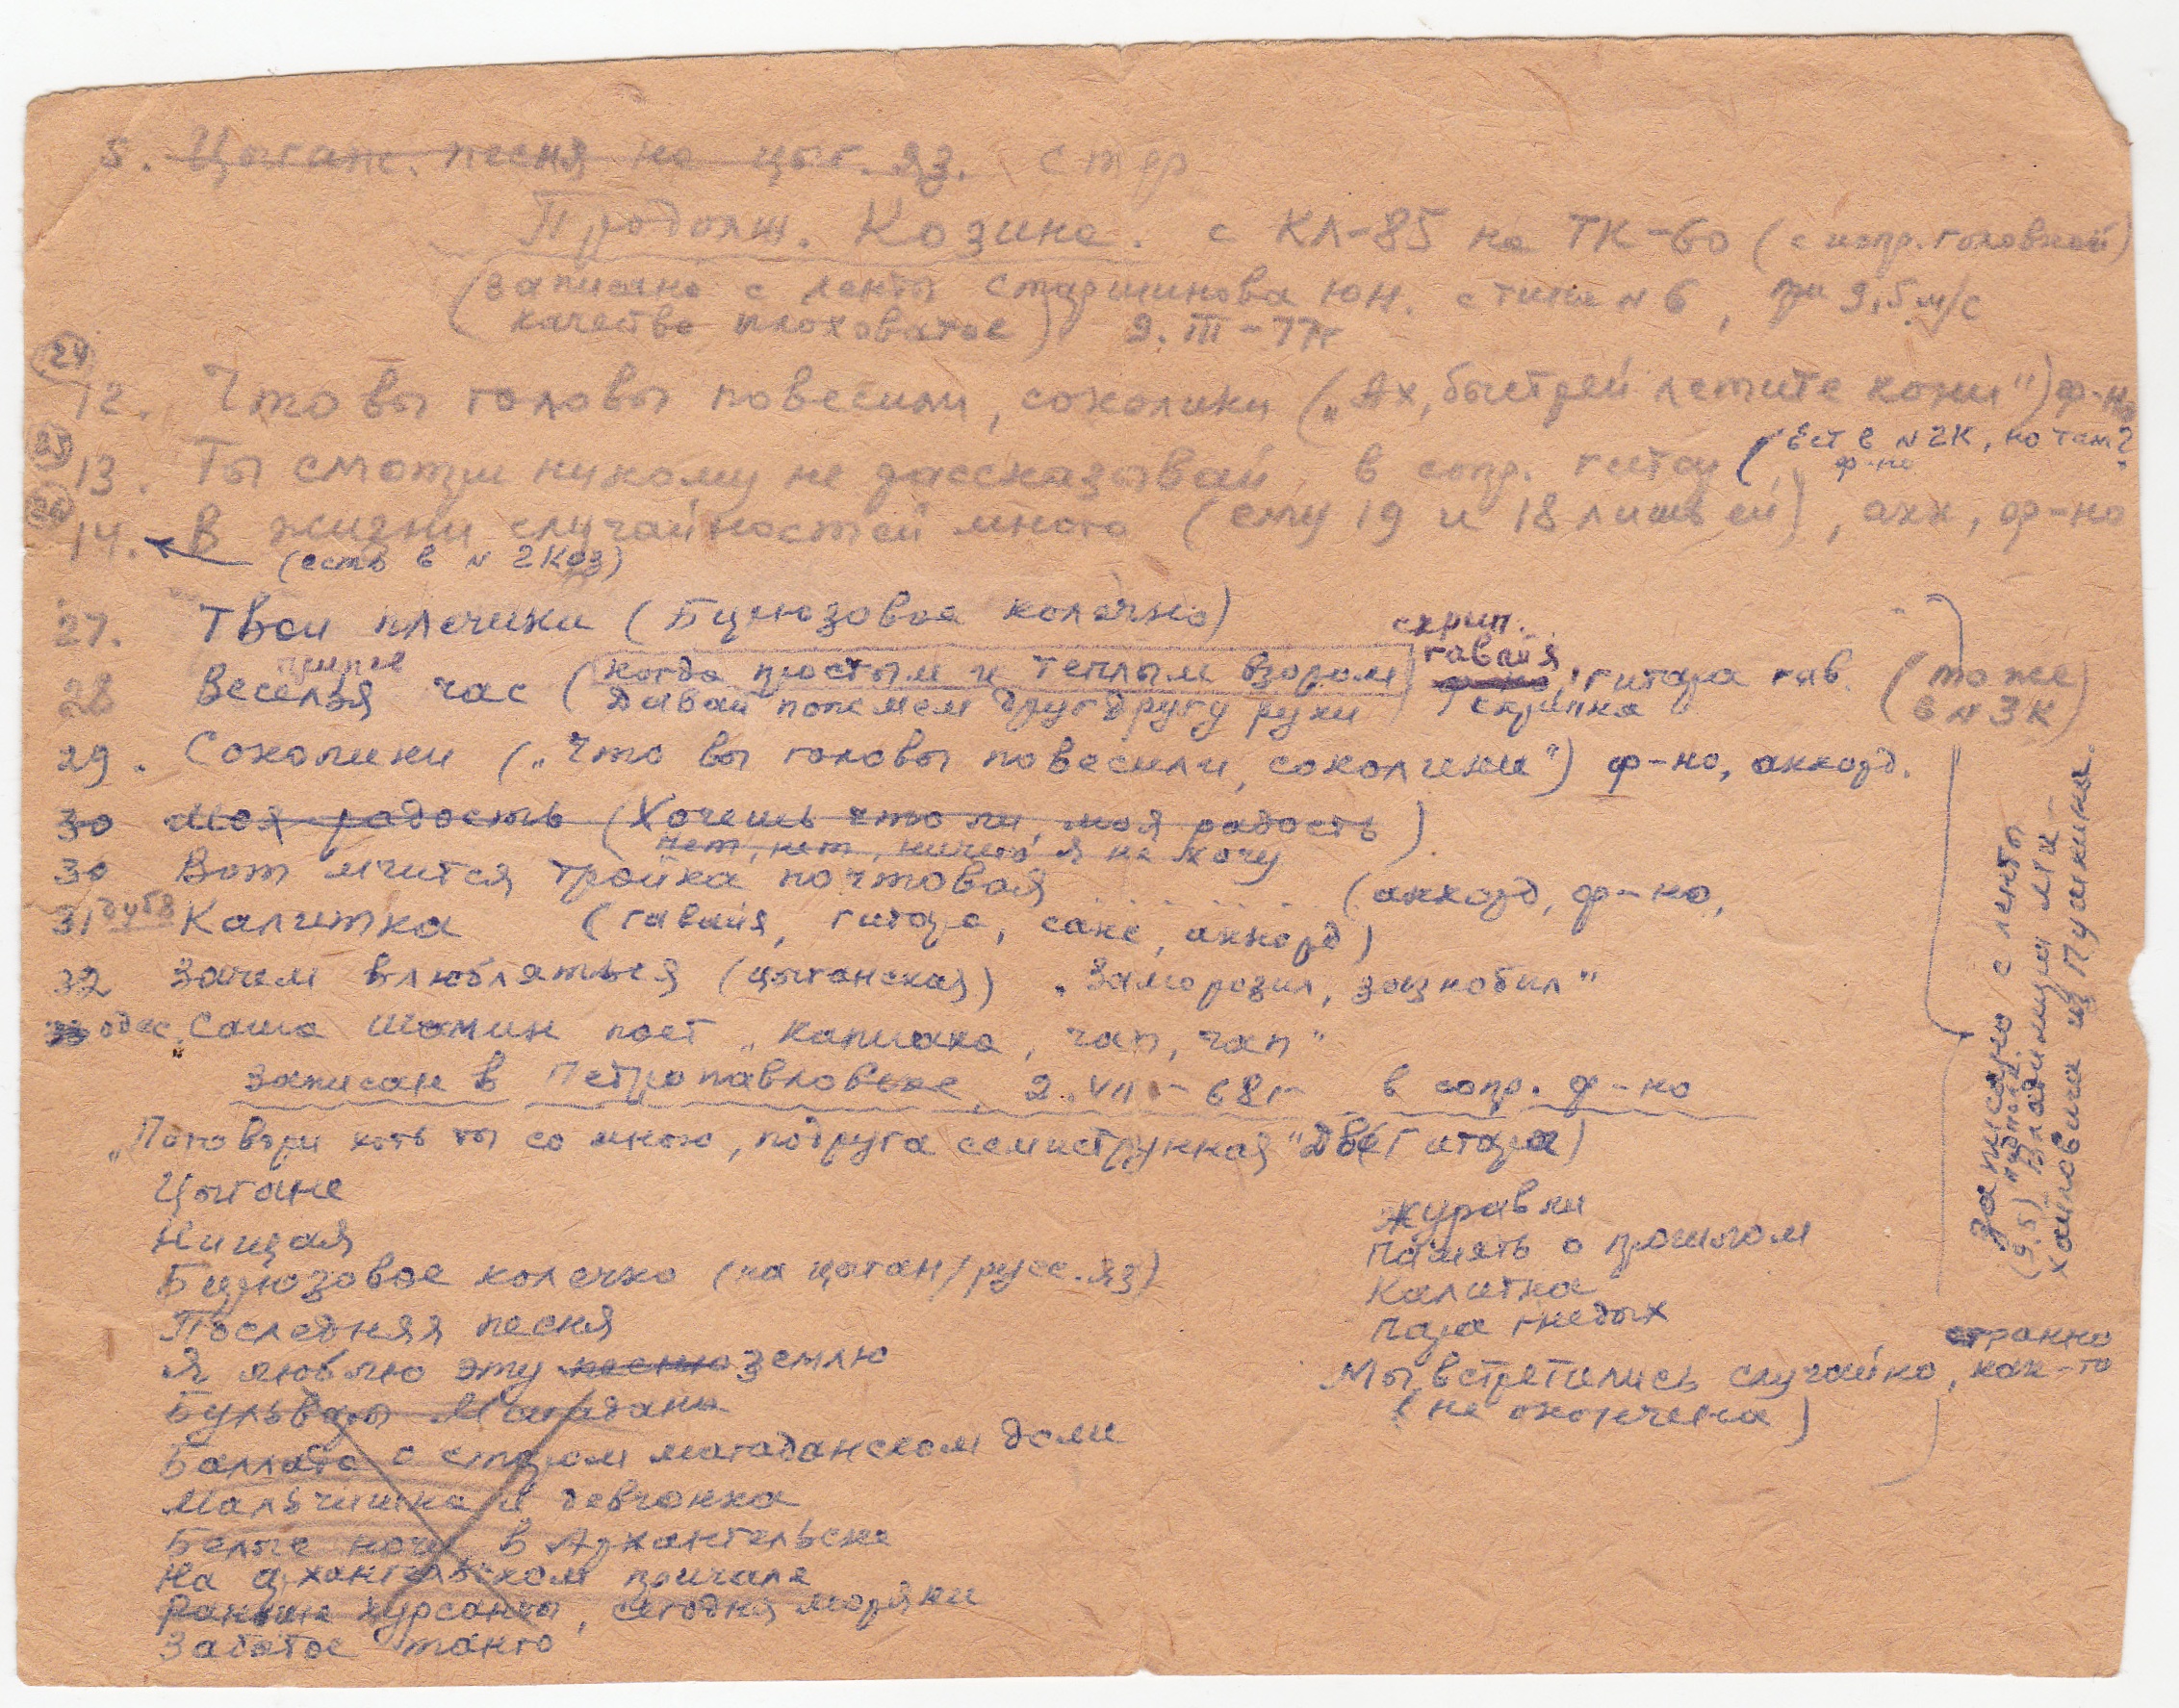 5. Цыган. песня на цыг. яз. стер
Продолж. Козина. с КЛ-85 на ТК-60 (с испр. головкой)
(записано с ленты Старшинова Юн. с типа N 6, при 9,5 м/с
качество плоховатое) 9.III-77г
24
12. Что вы головы повесили, соколики („Ах, быстрей летите кони") ф-но
25
13. Ты смотри никому не рассказывай, в сопр. гитар (Ест в N 2К, но там?
ф-но
26
14. В жизни случайностей много (ему 19 и 18 лишь ей), акк, ф-но
(есть в N 2 Коз)
27. Твои плечики (Бирюзовое колечко)
скрип.
припев
гавайя
28 Веселья час (когда простым и теплым взором ф-но, гитара гав. (то же
Давай пожмем друг другу руки скрипка в N 3К)
29. Соколики („Что вы головы повесили, соколики") ф-но, аккорд.
30 Моя радость (Хочешь что ли, моя радость)
Нет, нет, ничего я не хочу
30 Вот мчится тройка почтовая (аккорд, ф-но,
31 Калитка (гавайя, гитара, сакс, аккорд)
32 Зачем влюбляться (цыганская) „Заморозил, зазнобил"
33 одес. „Саша Шамин поет „Капишка, чап, чап"
Записан в Петропавловске 2.VII-68г в сопр. ф-но
„Поговори хоть ты со мною, подруга семиструнная" Две (Гитара)
Цыгане
Нищая
Бирюзовое колечко (на цыган/русс. яз)
Последняя песня
Я люблю эту песню землю
Бульвары Магадана
Баллада о старом магаданском доме
Мальчишка и девчонка
Белые ночи в Архангельске
На архангельском причале
Раньше курсанты, сегодня моряки
Забытое танго
Журавли
Память о прошлом
Калитка
Пара гнедых
странно
Мы встретились случайно, как-то
(не окончена)
Записано с ленты
(9.5) Владимира Ми-
хайловича из Пушкина.